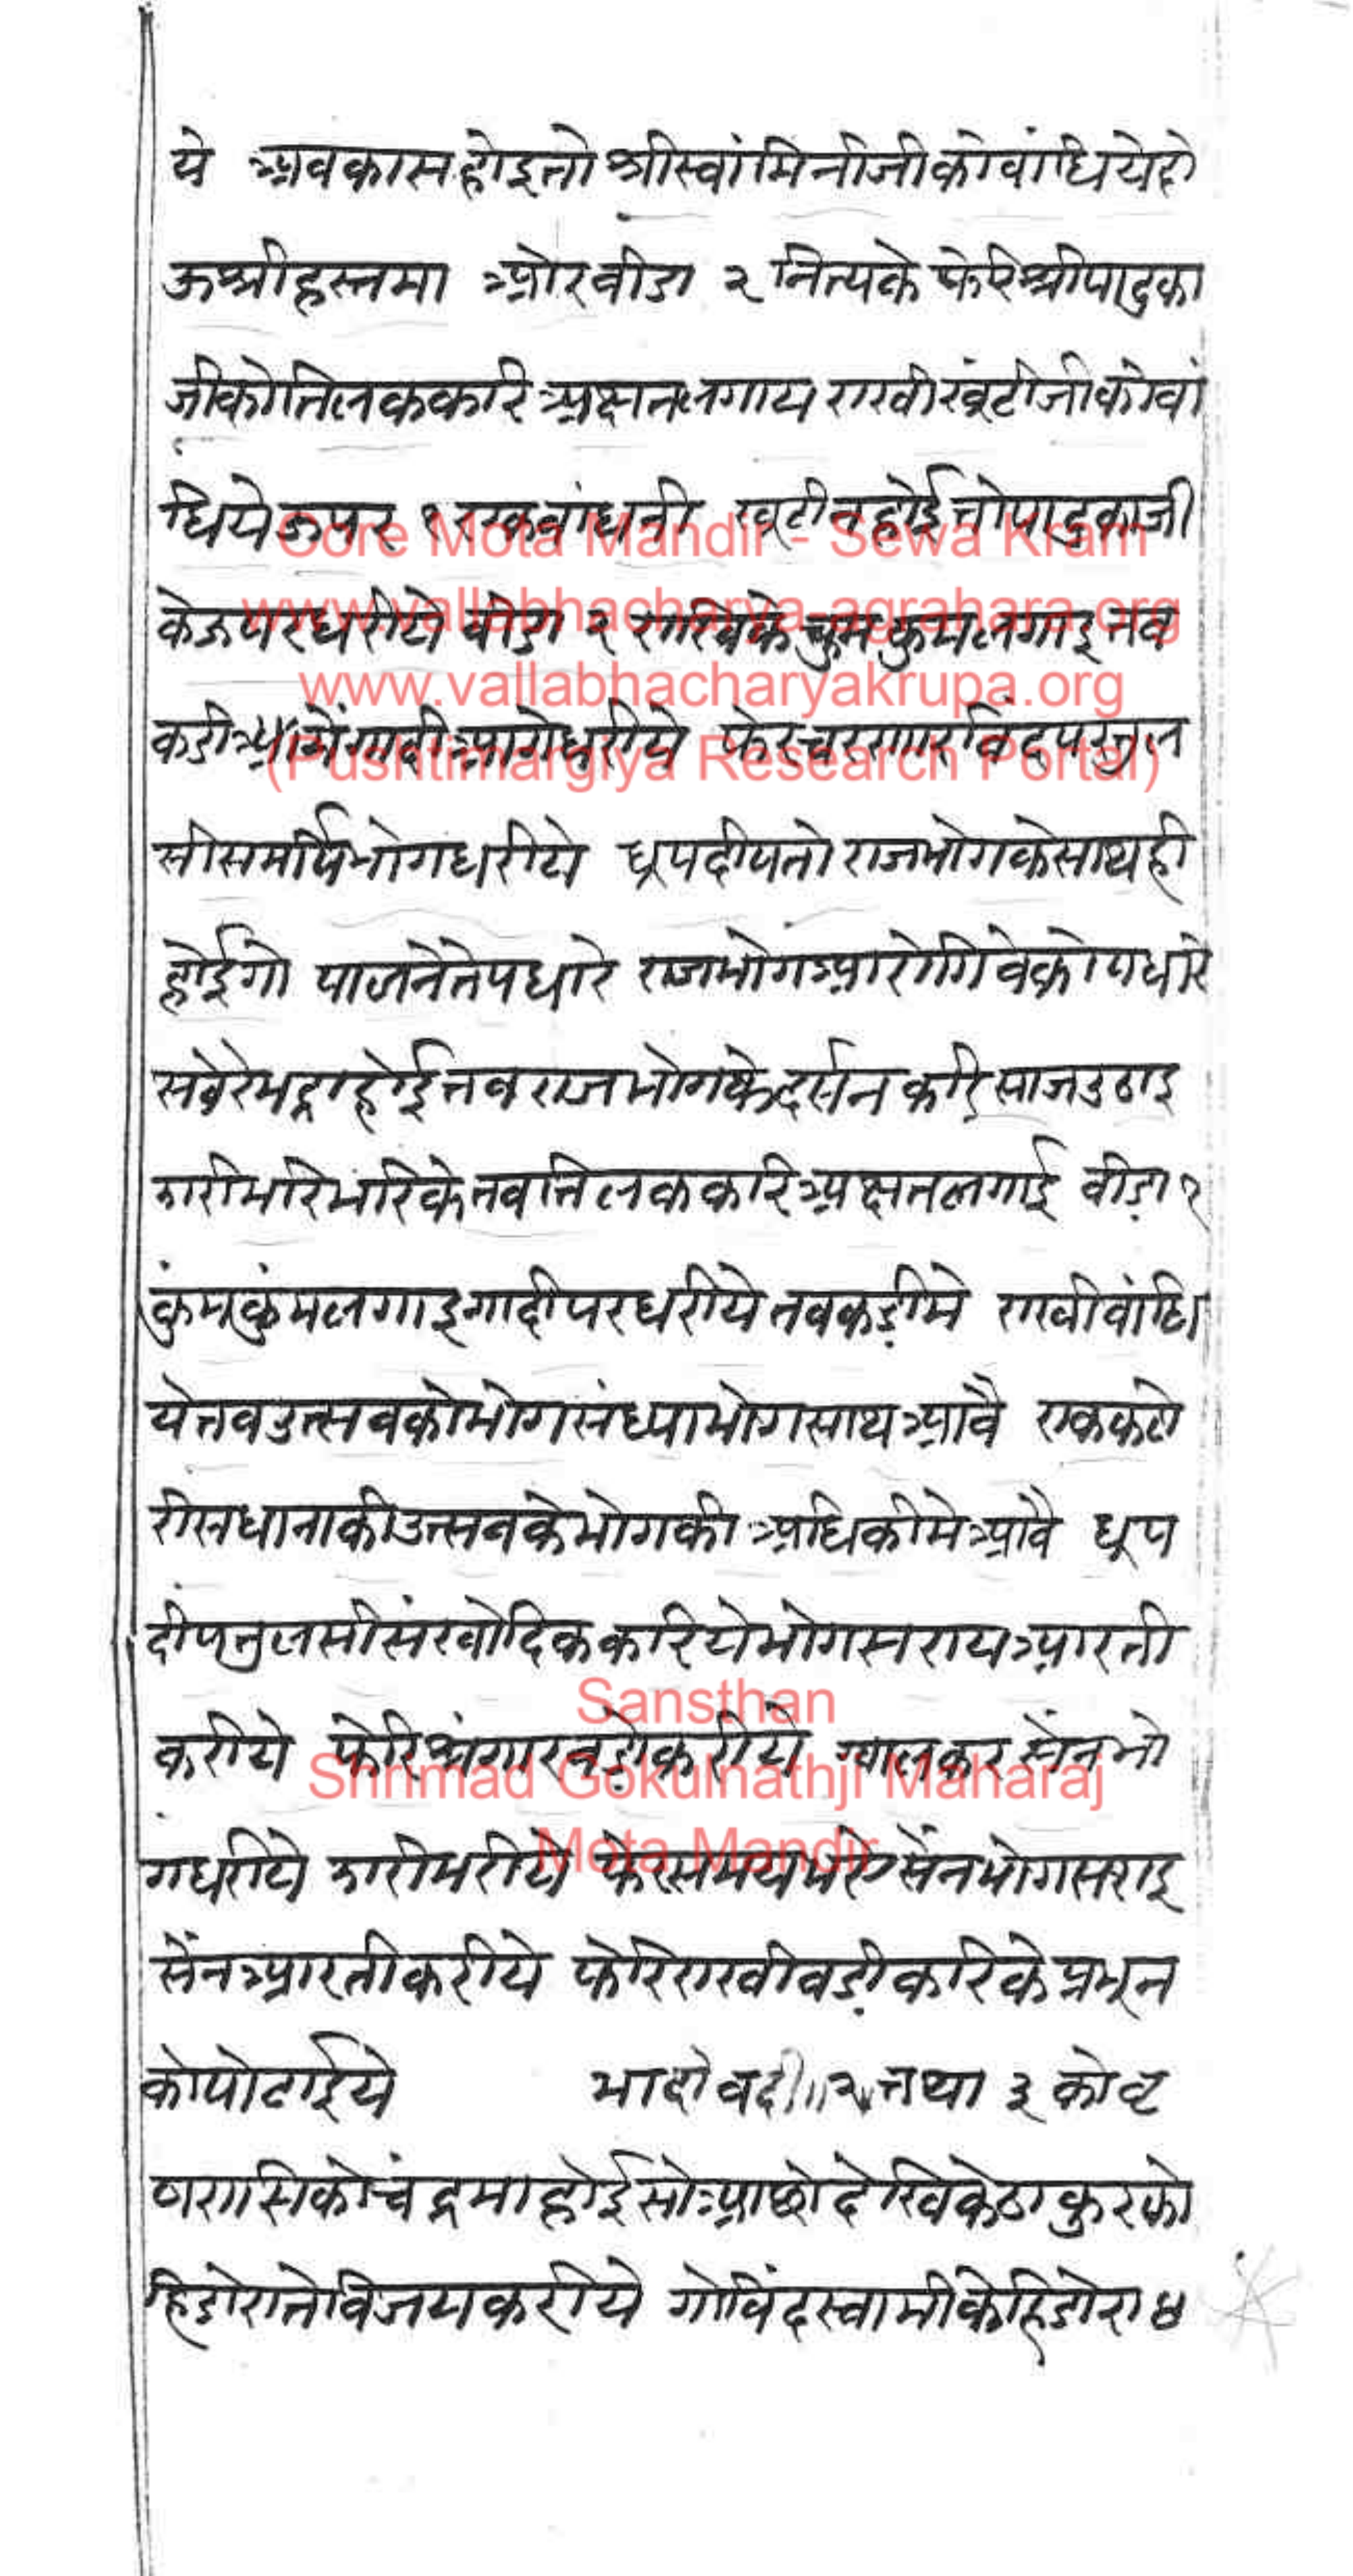 ये अवकास होइ तो श्रीस्वांमिनीजी को वांधिये दो
ऊ श्रीहस्तमा ओर वीडा २ नित्यके फेरि श्रीपादुका
जीको तिलक करि अक्षत लगाय राखी खूंटीजी को वां
धिये ऊपर १ एक वांधनी खूटी न होई तो पादुकाजी
के ऊपर धरीये वीडा २ राखिके कुमकुम लगाइ नव
कडी गादी आगे धरीये फेर चरणारविंद पर तुल
सी समर्पि भोग धरीये धूप दीप तो राजभोग के साथ ही
होईगो पालनेते पधारे राजभोग आरोगिवे को पधारे
सवेरे भद्रा होई तव राजभोग के दर्सन करि साज उठाइ
झारी भरि भरिके तव तिलक करि अक्षत लगाई वीड़ा १
कुंमकुंम लगाइ गादी पर धरीये तव कड़ीमे राखी वांधि
ये तव उत्सव को भोग संध्या भोग साथ आवै एक कटो
री सधाना की उत्सव के भोग की अधिकी मे आवै धूप
दीप तुलसी संखोदिक करिये भोग सराय आरती
करीये फेरि श्रृंगार वड़ो करीये ग्वाल कर सेंन भो
ग धरीये झारी भरीये फेर समय भये सेंन भोग सराइ
सेंन आरती करीये फेरि राखी वड़ी करिके प्रभून
को पोढाईये भादो वदी ॥ २ ॥ तथा ३ को वृ
ष रासि को चंद्रमा होई सो आछो देखिके ठाकुर को
हिडोराते विजय करीये गोविंदस्वामी के हिडोरा ४
Gore Mota Mandir - Sewa Kram
www.vallabhacharya-agrahara.org
www.vallabhacharyakrupa.org
(Pushtimargiya Research Portal)
Sansthan
Shrimad Gokulnathji Maharaj
Mota Mandir